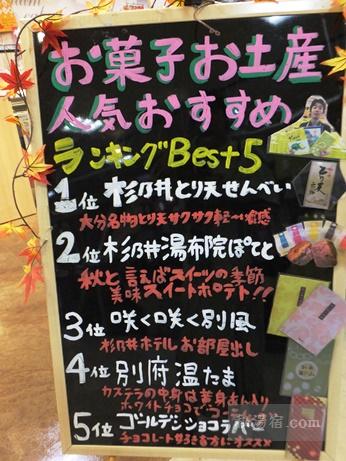 お菓子お土産
人気おすすめ
ランキングBest5
1位 杉乃井とり天せんべい
大分名物とり天サクサク軽〜い食感
2位 杉乃井湯布院ぽてと
秋と言えばスイーツの季節
美味スイートポテト!!
3位 咲く咲く別風
杉乃井ホテルお部屋出し
4位 別府温たま
カステラの中身は黄身あん入り
ホワイトチョコで
5位 ゴールデンショコラバー
チョコレート好きな方にオススメ
湯宿.com